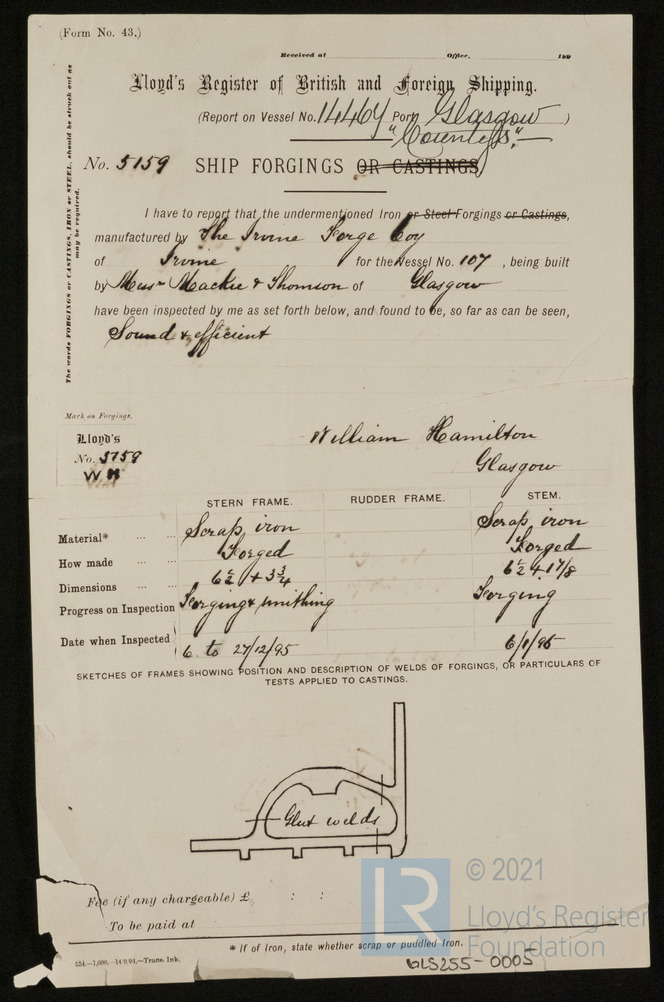 (Form No. 43.)
Received at Office, 189
Lloyd's Register of British and Foreign Shipping.
(Report on Vessel No. 14464 Port Glasgow )
"Countess."
No. 5159 SHIP FORGINGS OR CASTINGS.
The words FORGINGS or CASTINGS, IRON or STEEL, should be struck out as
may be required.
I have to report that the undermentioned Iron or Steel Forgings or Castings,
manufactured by The Irvine Forge Coy
of Irvine for the Vessel No. 107 , being built
by Messrs Mackie & Thomson of Glasgow
have been inspected by me as set forth below, and found to be, so far as can be seen,
Sound & efficient
Mark on Forgings.
Lloyd's
No. 5159
W H
William Hamilton
Glasgow
STERN FRAME. RUDDER FRAME. STEM.
Material* Scrap iron Scrap iron
How made Forged Forged
Dimensions 6½ + 3¾ 6½ + 1⅞
Progress on Inspection Forging & smithing Forging
Date when Inspected 6 to 27/12/95 6/1/96
SKETCHES OF FRAMES SHOWING POSITION AND DESCRIPTION OF WELDS OF FORGINGS, OR PARTICULARS OF
TESTS APPLIED TO CASTINGS.
Glut welds
Fee (if any chargeable) £ : :
To be paid at
* If of Iron, state whether scrap or puddled Iron.
554.—1,000.—14/9/94.—Trans. Ink.
GLS255-0005
LR
© 2021
Lloyd's Register
Foundation